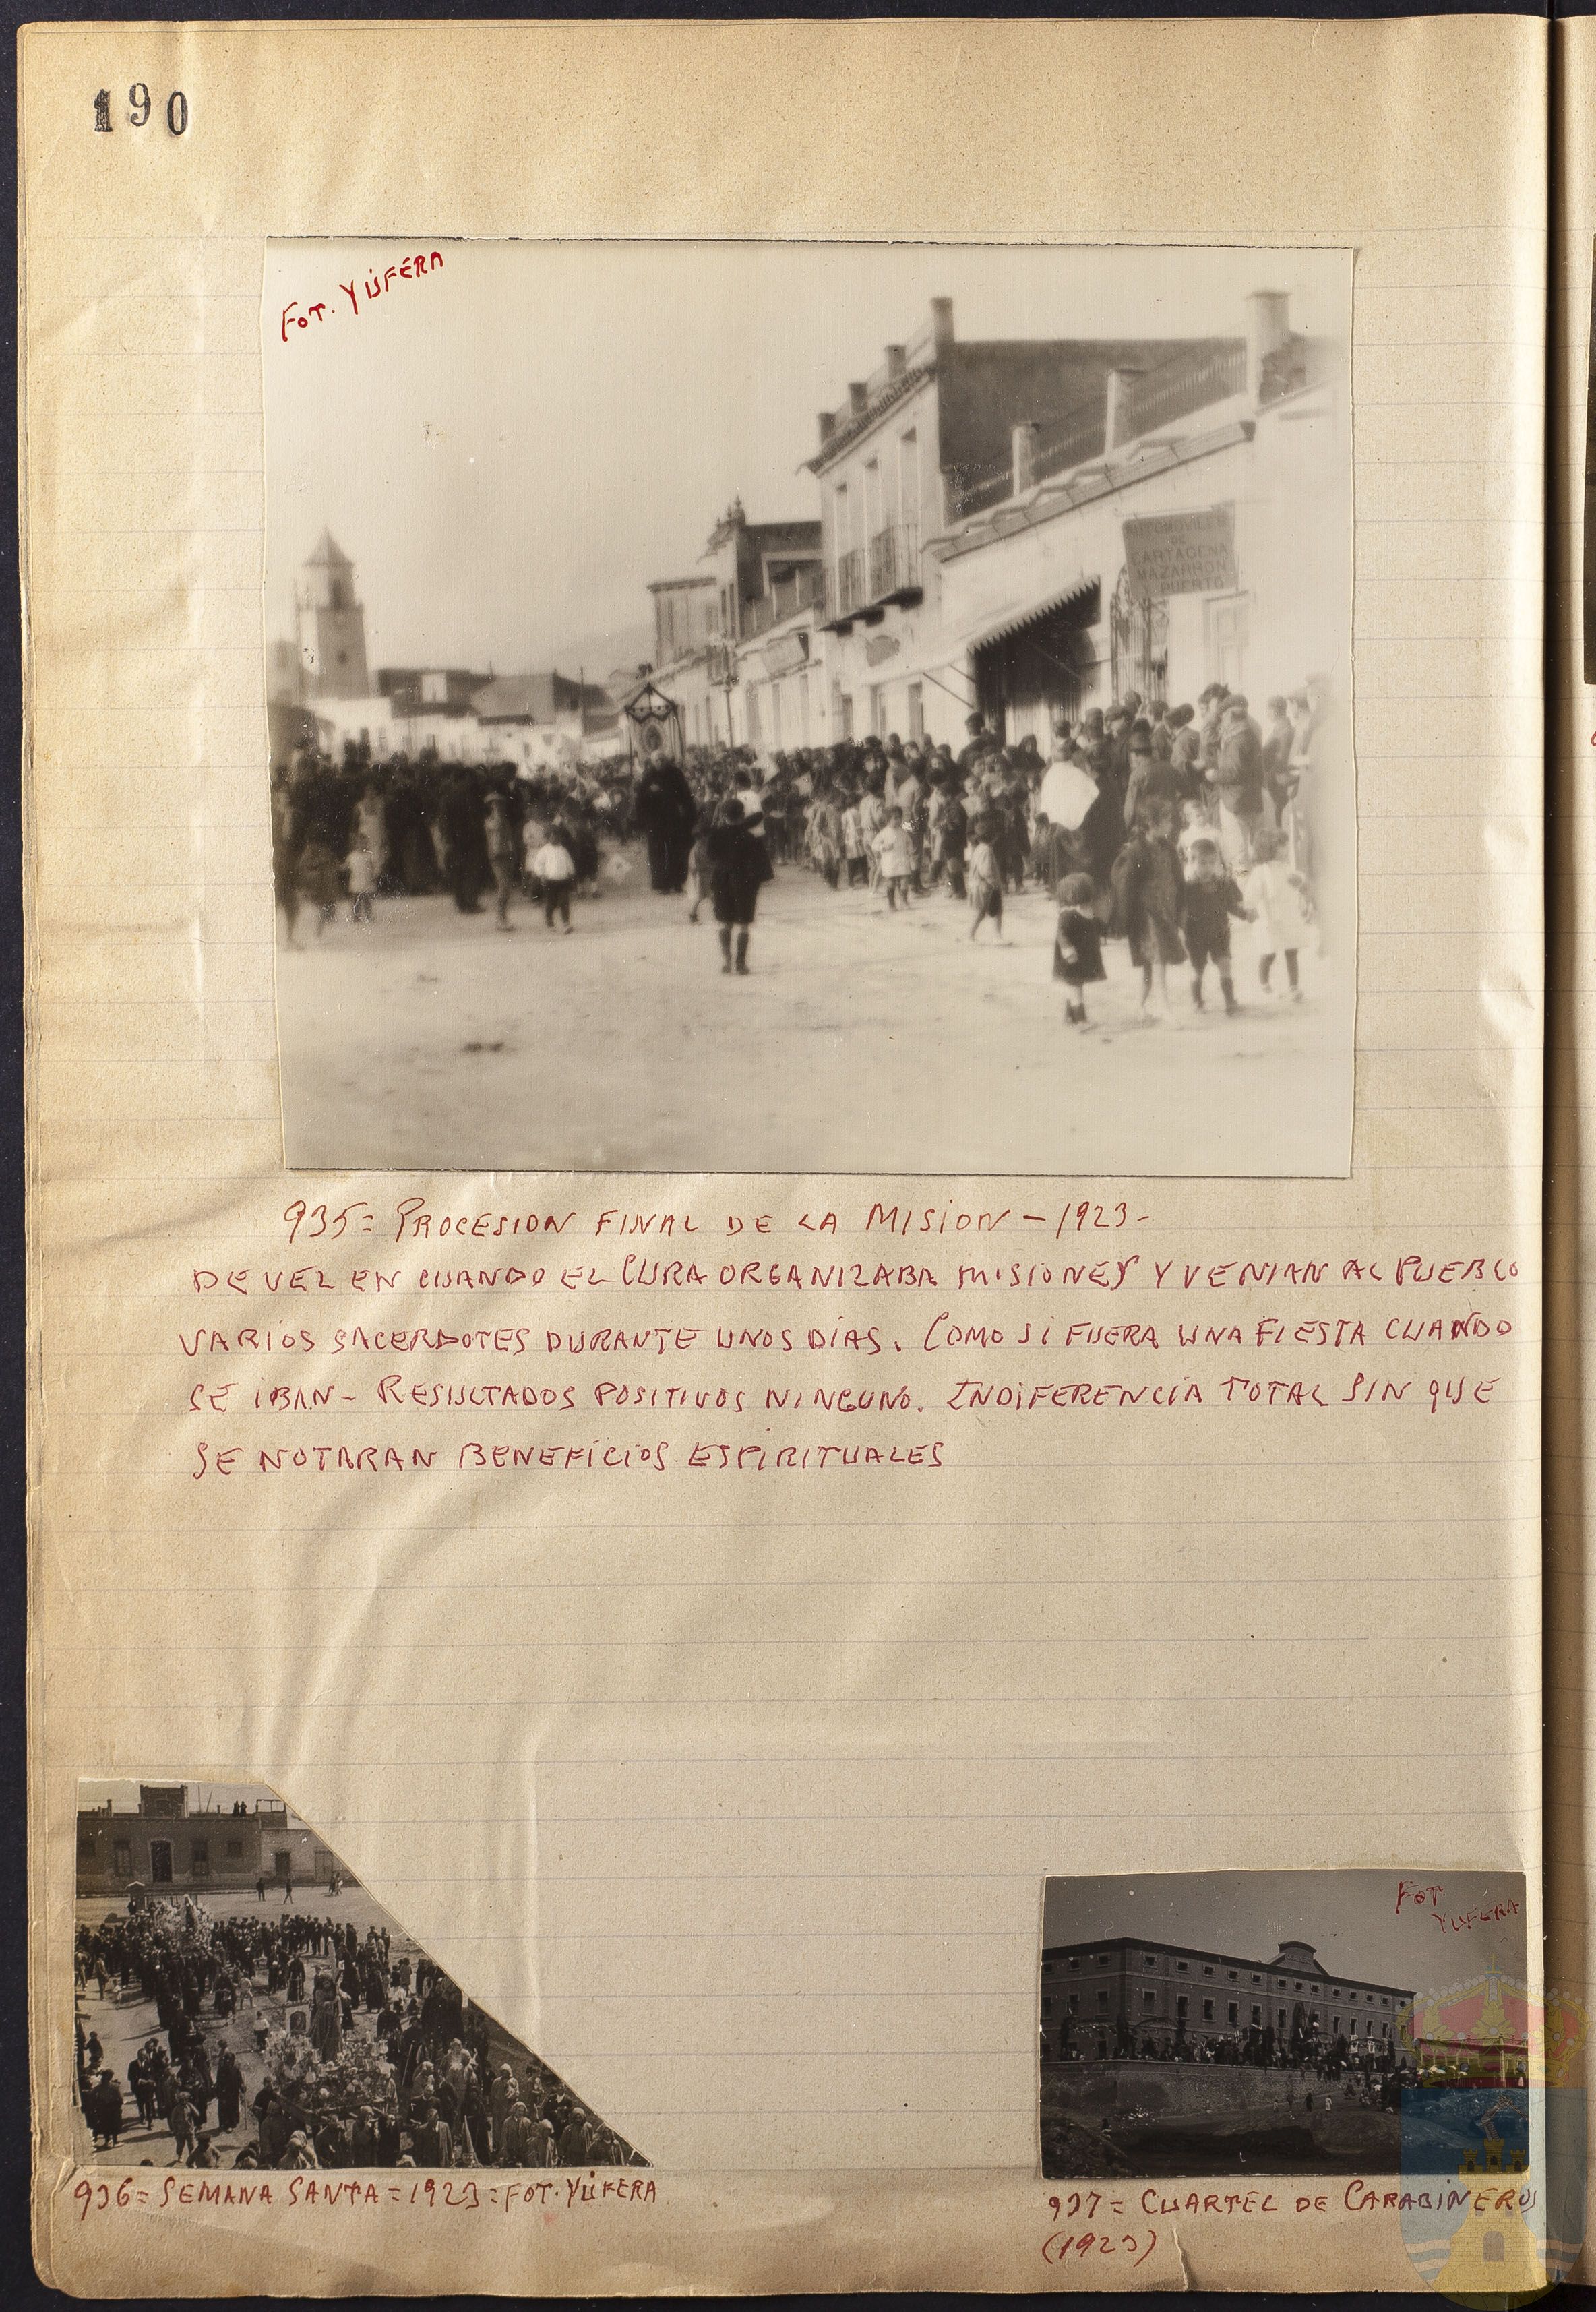 190
FOT. YÚFERA
AUTOMOVILES
DE
CARTAGENA
MAZARRON
PUERTO
935= PROCESION FINAL DE LA MISION - 1923-
DE VEZ EN CUANDO EL CURA ORGANIZABA MISIONES Y VENIAN AL PUEBLO
VARIOS SACERDOTES DURANTE UNOS DÍAS. COMO SI FUERA UNA FIESTA CUANDO
SE IBAN - RESULTADOS POSITIVOS NINGUNO. INDIFERENCIA TOTAL SIN QUE
SE NOTARAN BENEFICIOS ESPIRITUALES
936= SEMANA SANTA = 1923 = FOT. YÚFERA
FOT.
YUFERA
937= CUARTEL DE CARABINEROS
(1923)